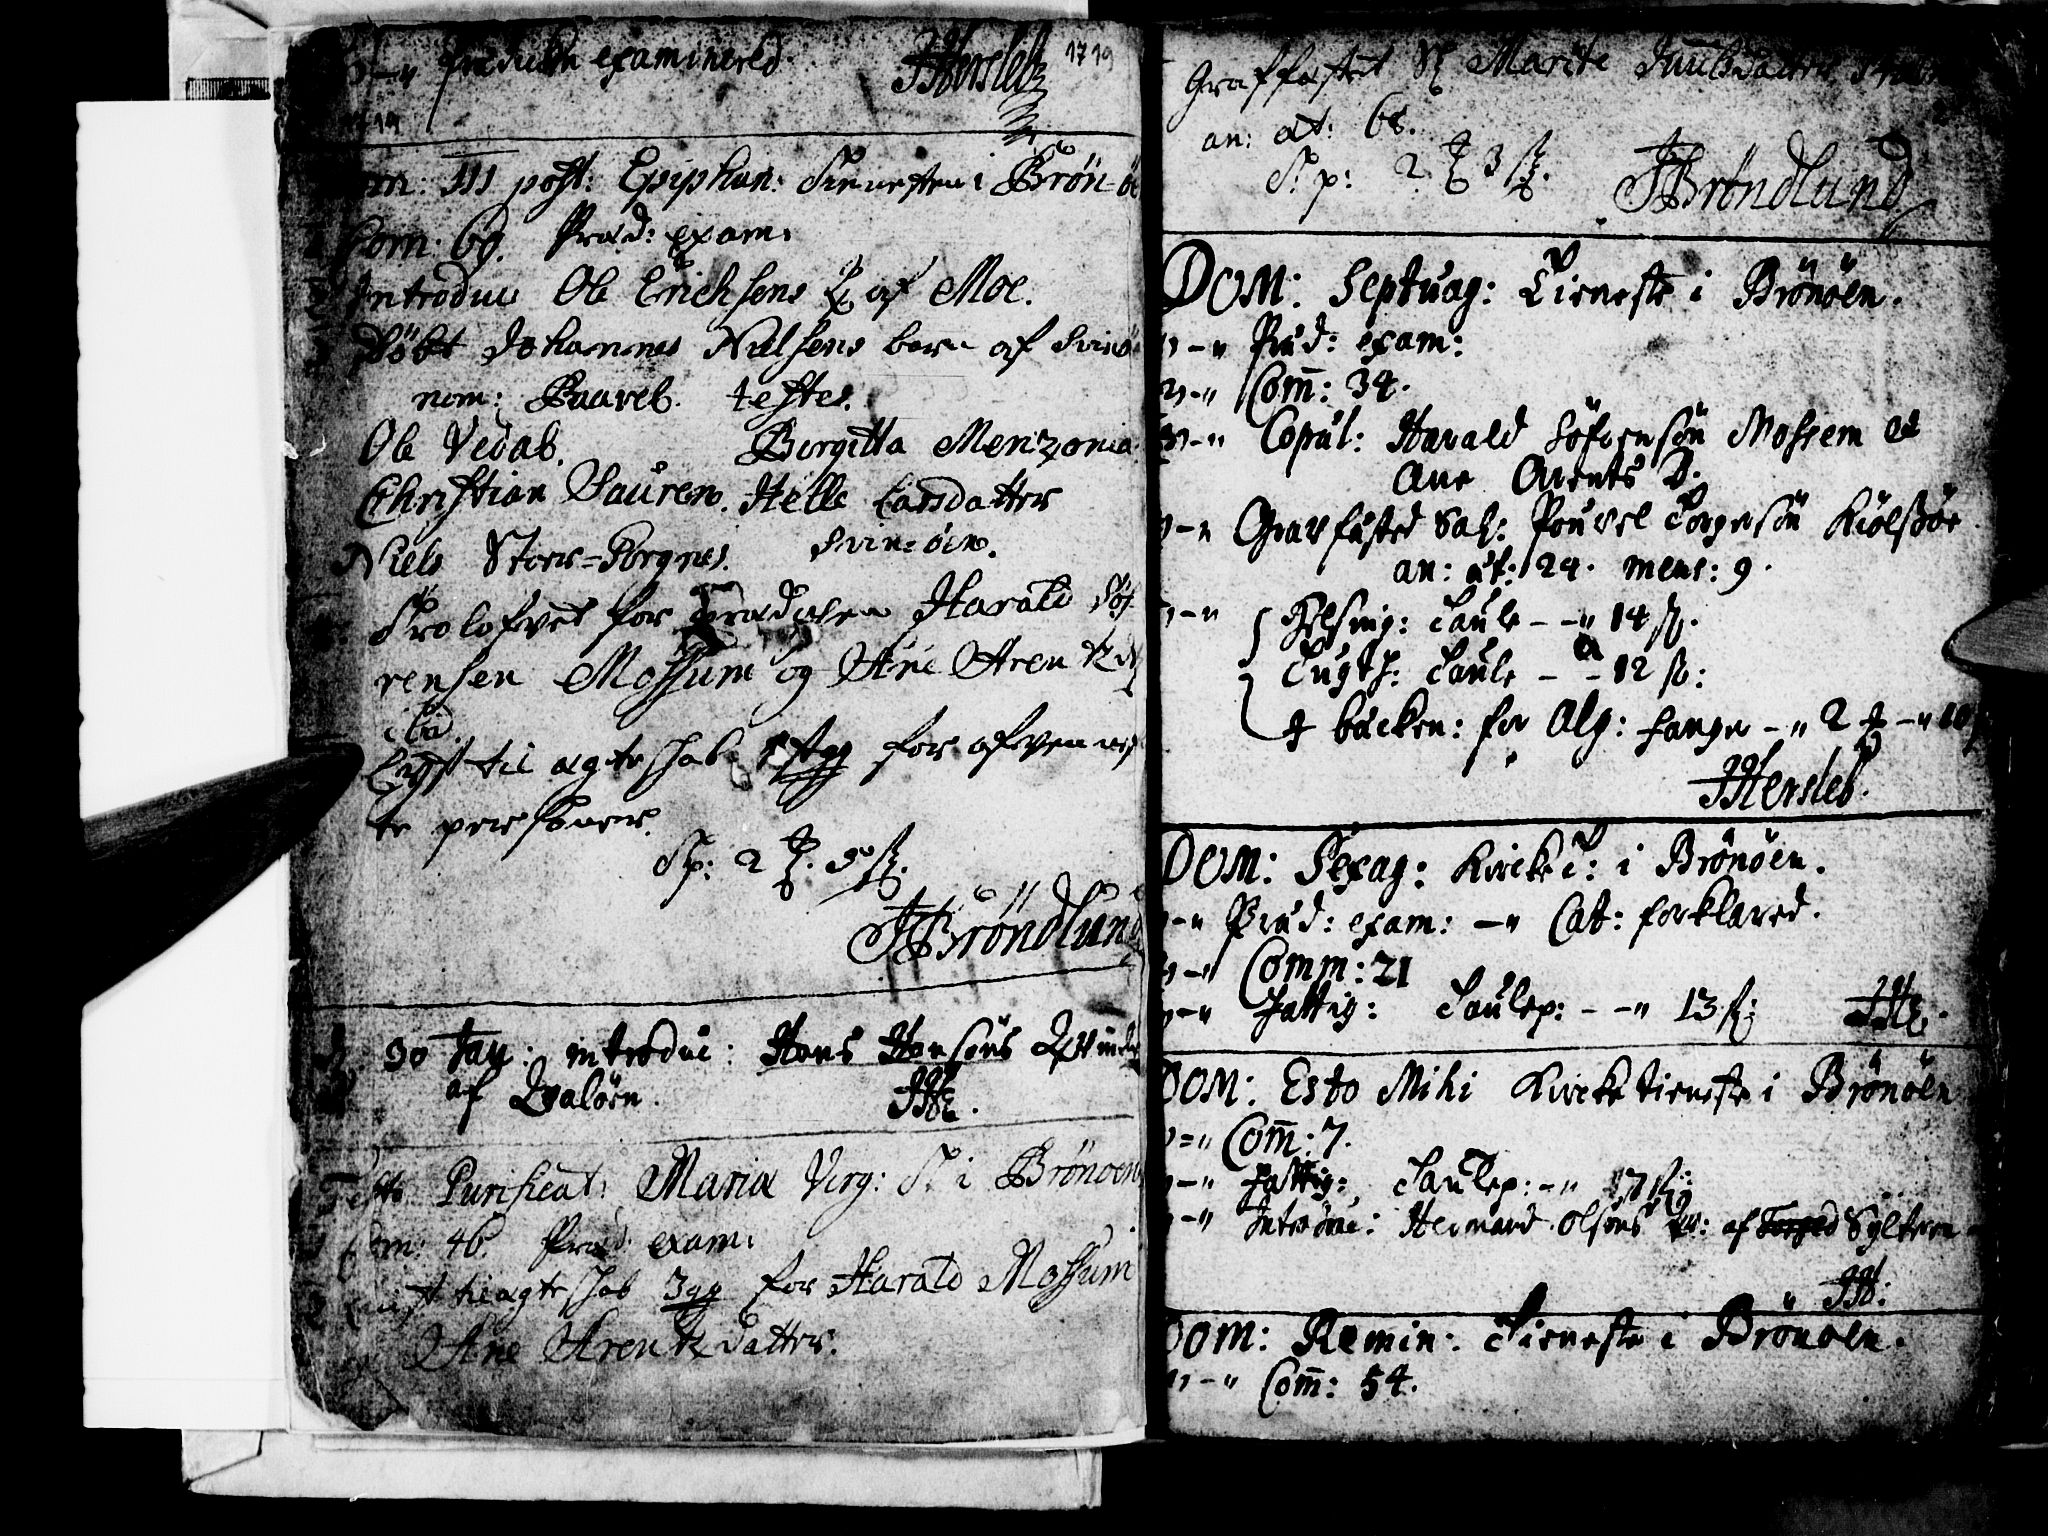 Prædiken examinered. JHersleb 1719
1719
Dom: III post: Epiphan: Tienesten i Brönöe
Com: 69. Præd: exam:
Introduc Ole Erichsens Q af Moe.
Döbt Johannes Nielsens barn af Svinö
nom: Paavel. testes.
Ole Vedal. Birgitta Menzonia
Christian Sauren. Helle Larsdatter
Niels Stoer-Torgnes. Svin-öen.
Trolofvet for prædiken Harald Söf-
rensen Mossum og Ane Arentzd
ibid.
Lyst til ægteskab 1ste gg for ofvennef
te personer.
T.p: 2 5 ß.
JBröndlund
30 Jan: introduc: Hans Hansöns Qvinde
af Qvalöen. JHb.
Festo Purificat: Mariæ Virg: T. i Brönöen
Com: 46. Præd: exam:
Liust til ægteskab 3 gg for Harald Mossum
Ane Arentzdatter.
Graffæstet Sl Marite Juulsdatter
an: æt: 68.
T.p: 2 3 ß.
JBröndlund
DOM: Septuag: Tieneste i Brönöen.
Præd: exam:
Com: 34.
Copul: Harald Söfrensön Mossem et
Ane Arents D.
Gravfæsted Sal: Pouvel Torgersön Kiölsöe
an: æt: 24. mens: 9.
Helsing: Taule - - 14 ß.
Tugth: Taule - - 12 ß:
bäcken: for Alg: fanger - 2 - 10 ß
JHersleb.
DOM: Sexag: Kirke T: i Brönöen.
Præd: exam: - Cat: forklared.
Comm: 21
Fattig: Taulep: - - 13 ß: JHb.
DOM: Esto Mihi Kircketieneste i Brönöen
Com: 7.
Fattig: Taulep: - 17 ß:
Introduc: Hermand Olsöns Qv: af Sylteren
JHb:
Dom: Remin: Tieneste i Brönöen.
Com: 54.